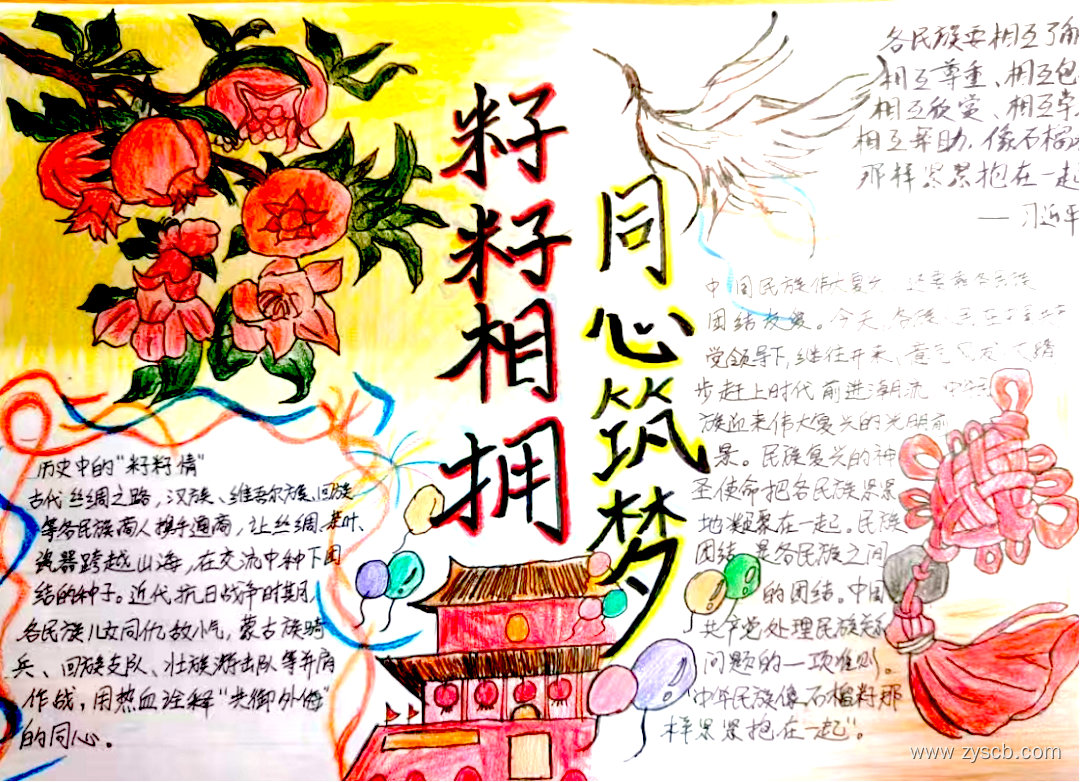 籽籽相拥
同心筑梦
各民族要相互了解
相互尊重、相互包
相互欣赏、相互学
相互帮助，像石榴
那样紧紧抱在一起
— 习近平
中国民族伟大复兴
团结友爱。今天，各族
党领导下，继往开来，意气风发
步赶上时代前进潮流
族迎来伟大复兴的光明前
景。民族复兴的神
圣使命把各民族紧紧
地凝聚在一起。民族
团结 是各民族之间
的团结。中国
共产党处理民族关系
问题的一项准则。
"中华民族像石榴籽那
样紧紧抱在一起"。
历史中的"籽籽情"
古代丝绸之路，汉族、维吾尔族、回族
等各民族商人携手通商，让丝绸、茶叶、
瓷器跨越山海，在交流中种下团
结的种子。近代抗日战争时期，
各民族儿女同仇敌忾，蒙古族骑
兵、回族支队、壮族游击队等并肩
作战，用热血诠释"共御外侮"
的同心。
www.zyscb.com